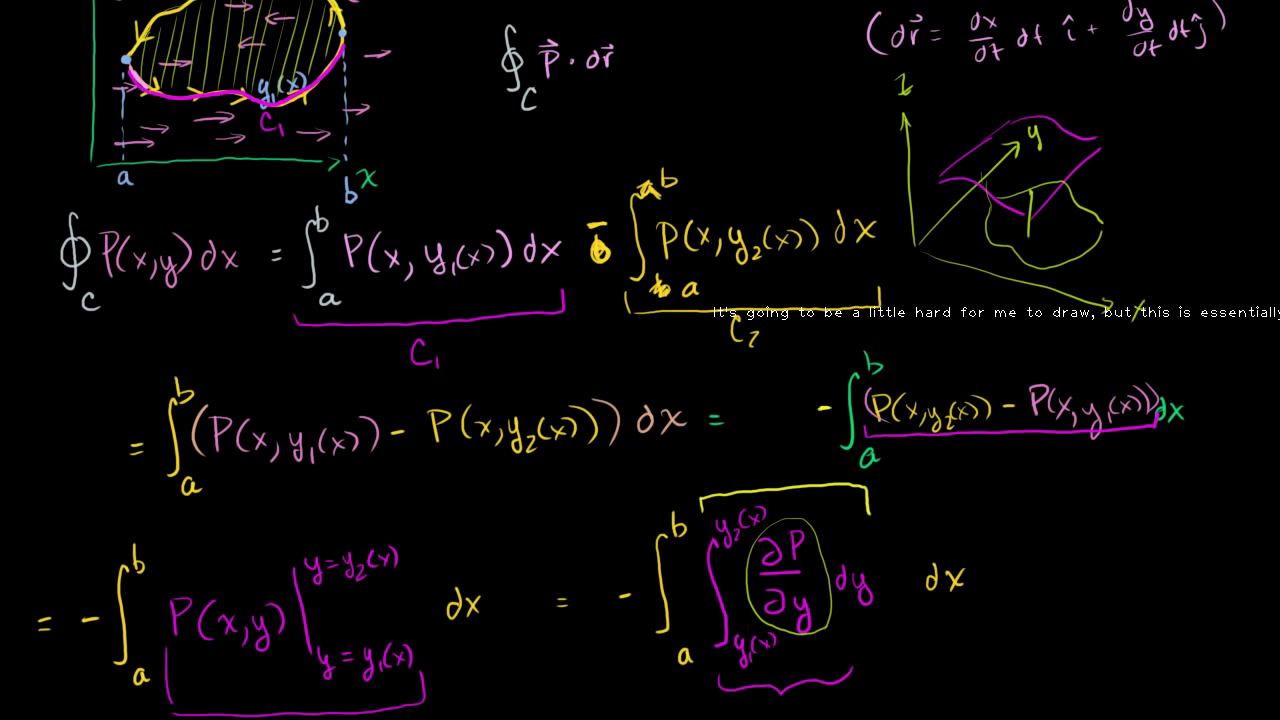 (dr⃗ = dx/dt dt î + dy/dt dt ĵ)
∮_C P⃗ · dr⃗
y₁(x)
C₁
a
b
x
z
y
x
∮_C P(x,y) dx = ∫_a^b P(x, y₁(x)) dx - ∫_a^b P(x, y₂(x)) dx
It's going to be a little hard for me to draw, but this is essentially
C₁
C₂
= ∫_a^b (P(x, y₁(x)) - P(x, y₂(x))) dx = - ∫_a^b (P(x, y₂(x)) - P(x, y₁(x))) dx
= - ∫_a^b P(x,y) |_{y = y₁(x)}^{y = y₂(x)} dx = - ∫_a^b ∫_{y₁(x)}^{y₂(x)} ∂P/∂y dy dx